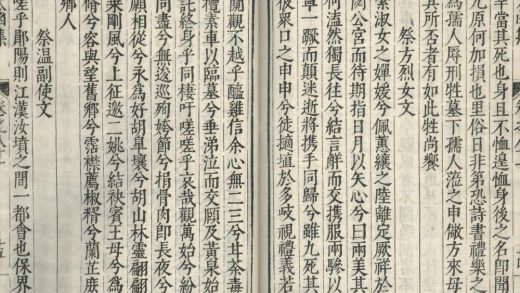 辛當其死也身且不恤遑恤身後之名即聞
九原何加損也里俗日非第恐詩書禮樂之
為孺人辱刑牲墓下孺人涖之申儆方來毋
其所否者有如此牲尚饗
祭方烈女文
繄淑女之嬋媛兮佩蕙纕之陸離定厥祥於
闕公宮而待期指日月以矢心兮曰兩美其
何溘然獨長往兮結言觧而交攜服兩驂以
寧一蹶而顛迷逝將携手同歸兮雖九死其
彼衆口之申申兮徒擿埴於多岐視禮義若
闚觀不越乎醯雞信余心無二三兮甘荼毒
禮素車以臨墓兮垂涕泣而交頥及黃泉始
同盡兮無逡廵殉姱節兮捐骨肉即長夜兮
託終身乎同棲吁嗟嗟乎哀哉觀萬始兮紛
願相從兮永為好胡臯壤兮胡山林靈翩翩
乗剛風兮上征邀二姚兮結袂賓王母兮為
脩兮容與望舊鄉兮霑襟薦椒糈兮蘭芷
鄉人
祭溫副使文
鄖陽則江漢汝墳之間一都會也保界